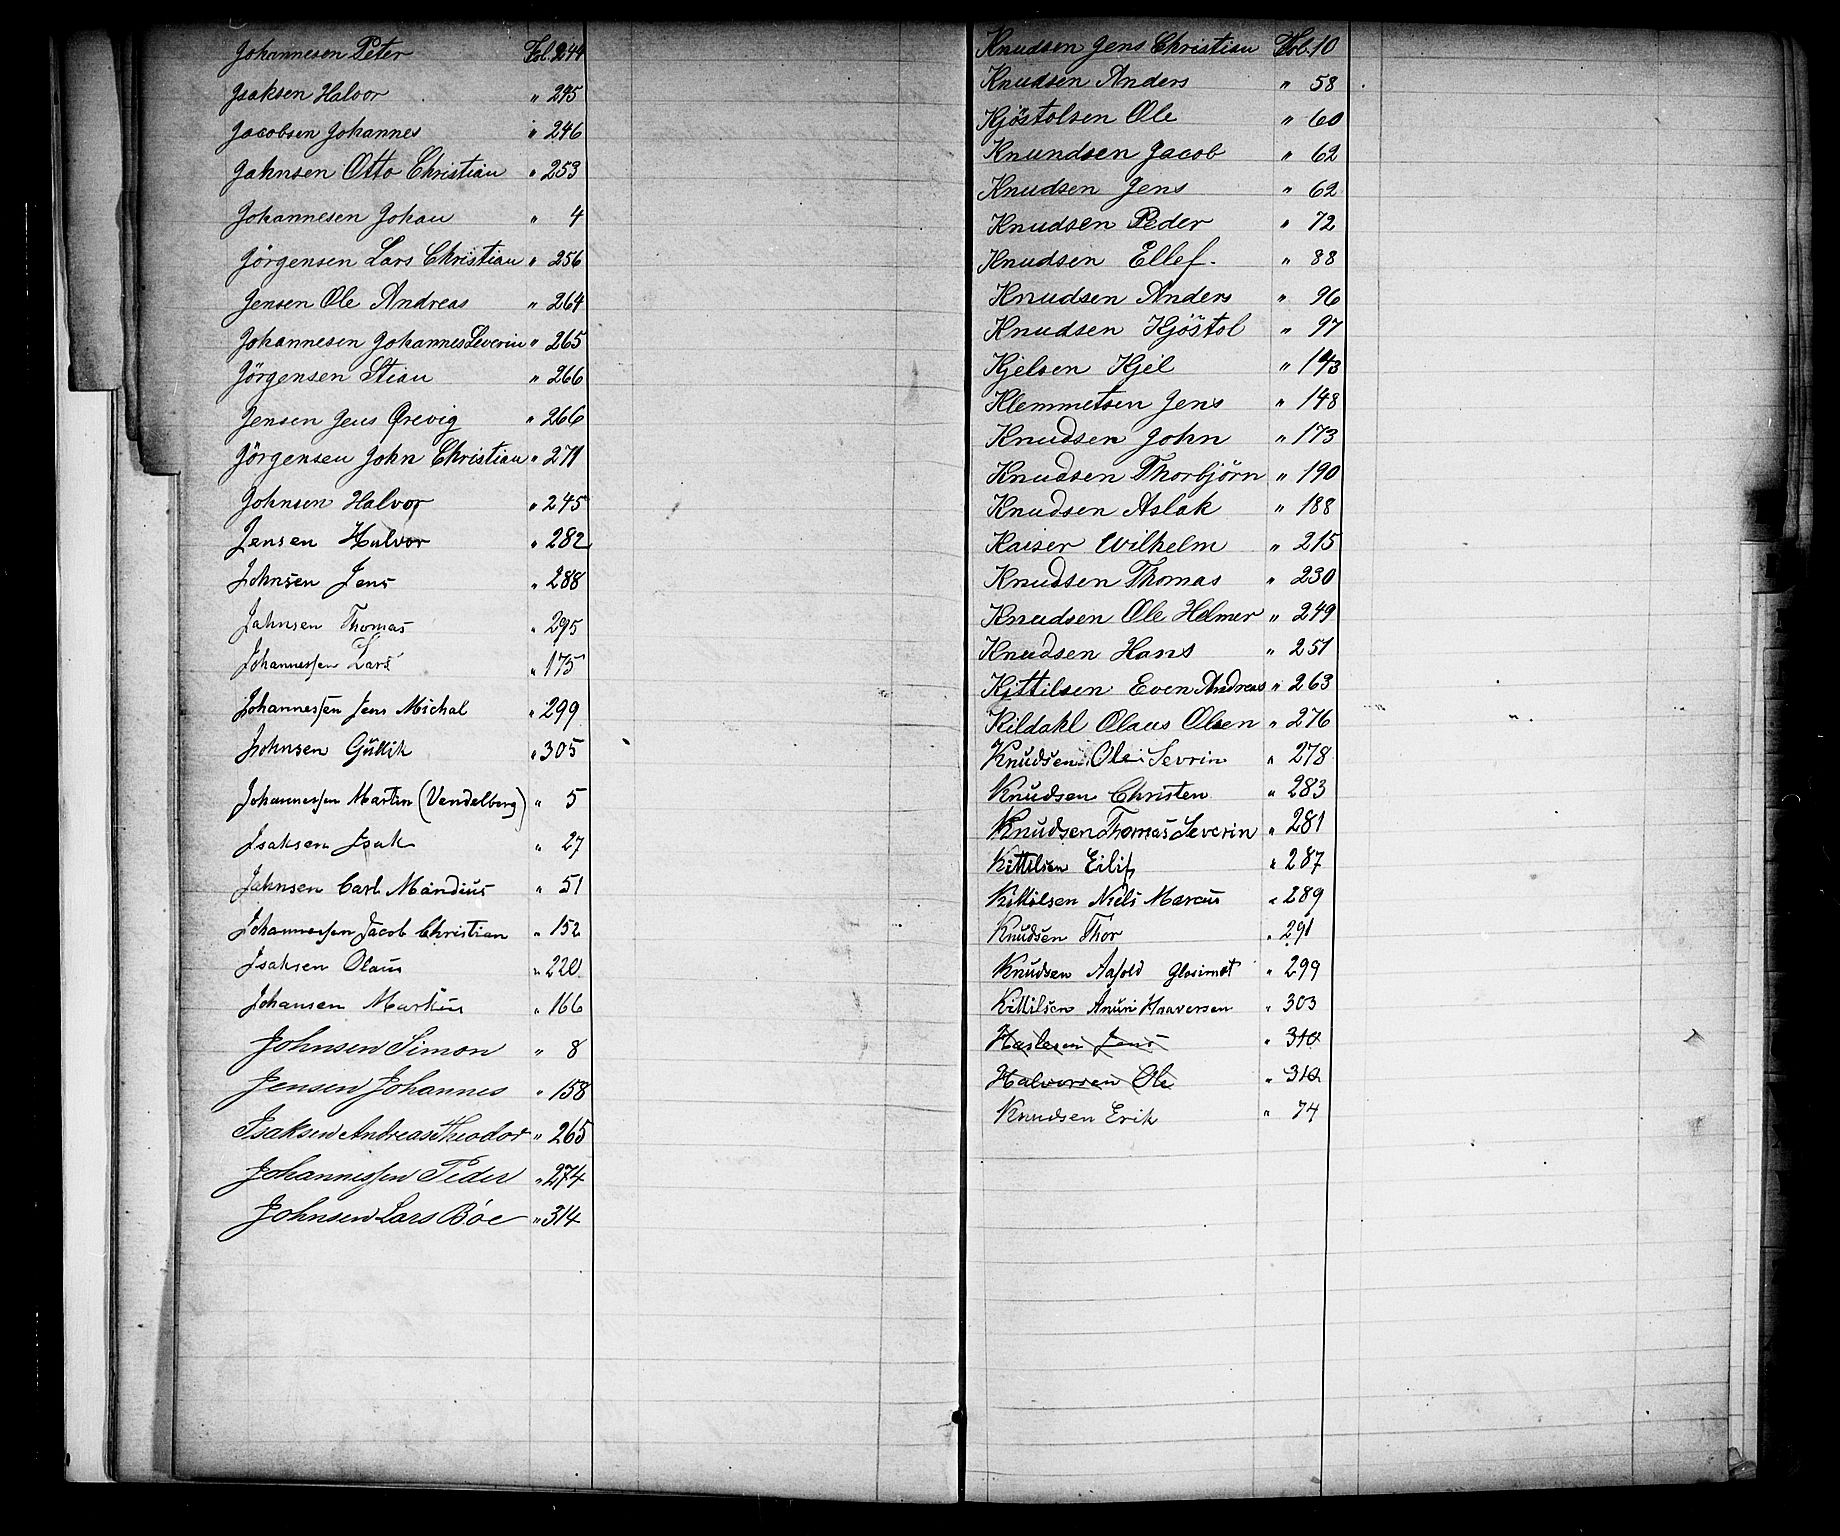 Johannesen Peter Fol. 244
Isaksen Halvor " 245
Jacobsen Johannes " 246
Jahnsen Otto Christian " 253
Johannesen Johan " 4
Jörgensen Lars Christian " 256
Jensen Ole Andreas " 264
Johannesen Johannes Severin " 265
Jörgensen Stian " 266
Jensen Jens Ørevig " 266
Jörgensen John Christian " 271
Johnsen Halvor " 245
Jensen Halvor " 282
Johnsen Jens " 288
Jahnsen Thomas " 295
Johannessen Lars " 175
Johannessen Jens Michal " 299
Johnsen Gullik " 305
Johannessen Martin (Vendelborg) " 5
Isaksen Isak " 27
Jahnsen Carl Mandius " 51
Johannessen Jacob Christian " 152
Isaksen Olaus " 220
Johansen Markus " 166
Johnsen Simon " 8
Jensen Johannes " 158
Isaksen Andreas Theodor " 265
Johannessen Peder " 274
Johnsen Lars Böe " 314
Knudsen Jens Christian Fol. 10
Knudsen Anders " 58
Kjöstolsen Ole " 60
Knundsen Jacob " 62
Knudsen Jens " 62
Knudsen Peder " 72
Knudsen Ellef. " 88
Knudsen Anders " 96
Knudsen Kjöstol " 97
Kjelsen Kjel " 143
Klemmetsen Jens " 148
Knudsen John " 173
Knudsen Thorbjörn " 190
Knudsen Aslak " 188
Kaiser Wilhelm " 215
Knudsen Thomas " 230
Knudsen Ole Helmer " 249
Knudsen Hans " 251
Kittilsen Even Andreas " 263
Kildahl Olaus Olsen " 276
Knudsen Ole Sevrin " 278
Knudsen Christen " 283
Knudsen Thomas Severin " 281
Kittilsen Eilif " 287
Kittilsen Niels Marcus " 289
Knudsen Thor " 291
Knudsen Aasold " 299
Kittilsen Anun Haaversen " 303
Jens " 310
Halvorsen Ole " 310
Knudsen Erik " 74